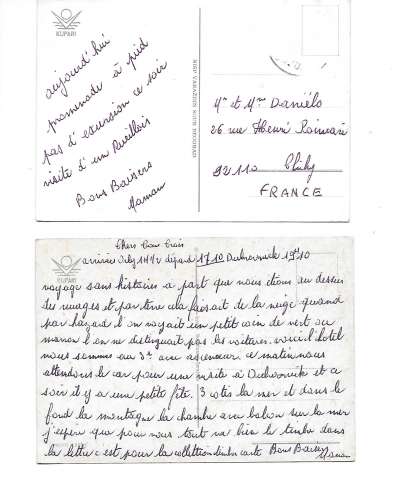 KUPARI
aujourd'hui
promenade à pied
pas d'excursion ce soir
visite d'un
Bons Baisers
Maman
Mr et Mme Daniélo
26 rue Henri
92110 Clichy
FRANCE
Chers tous trois
arrivée Orly 14h½ départ 17h10 Dubrovnik 19h10
voyage sans histoires a part que nous étions au dessus
des nuages et par terre cela faisait de la neige quand
par hazard l'on voyait un petit coin de vert ou
maron l'on ne distinguait pas les voitures. voici l'hotel
nous sommes au 3e avec ascenceur ce matin nous
attendons le car pour une visite à Dubrovnik et ce
soir il y a une petite fête. 3 cotés la mer et dans le
fond la montagne la chambre avec balcon sur la mer
j'espère que pour vous tout va bien le timbre dans
la lettre c'est pour la collection timbre carte Bons Baisers
Maman